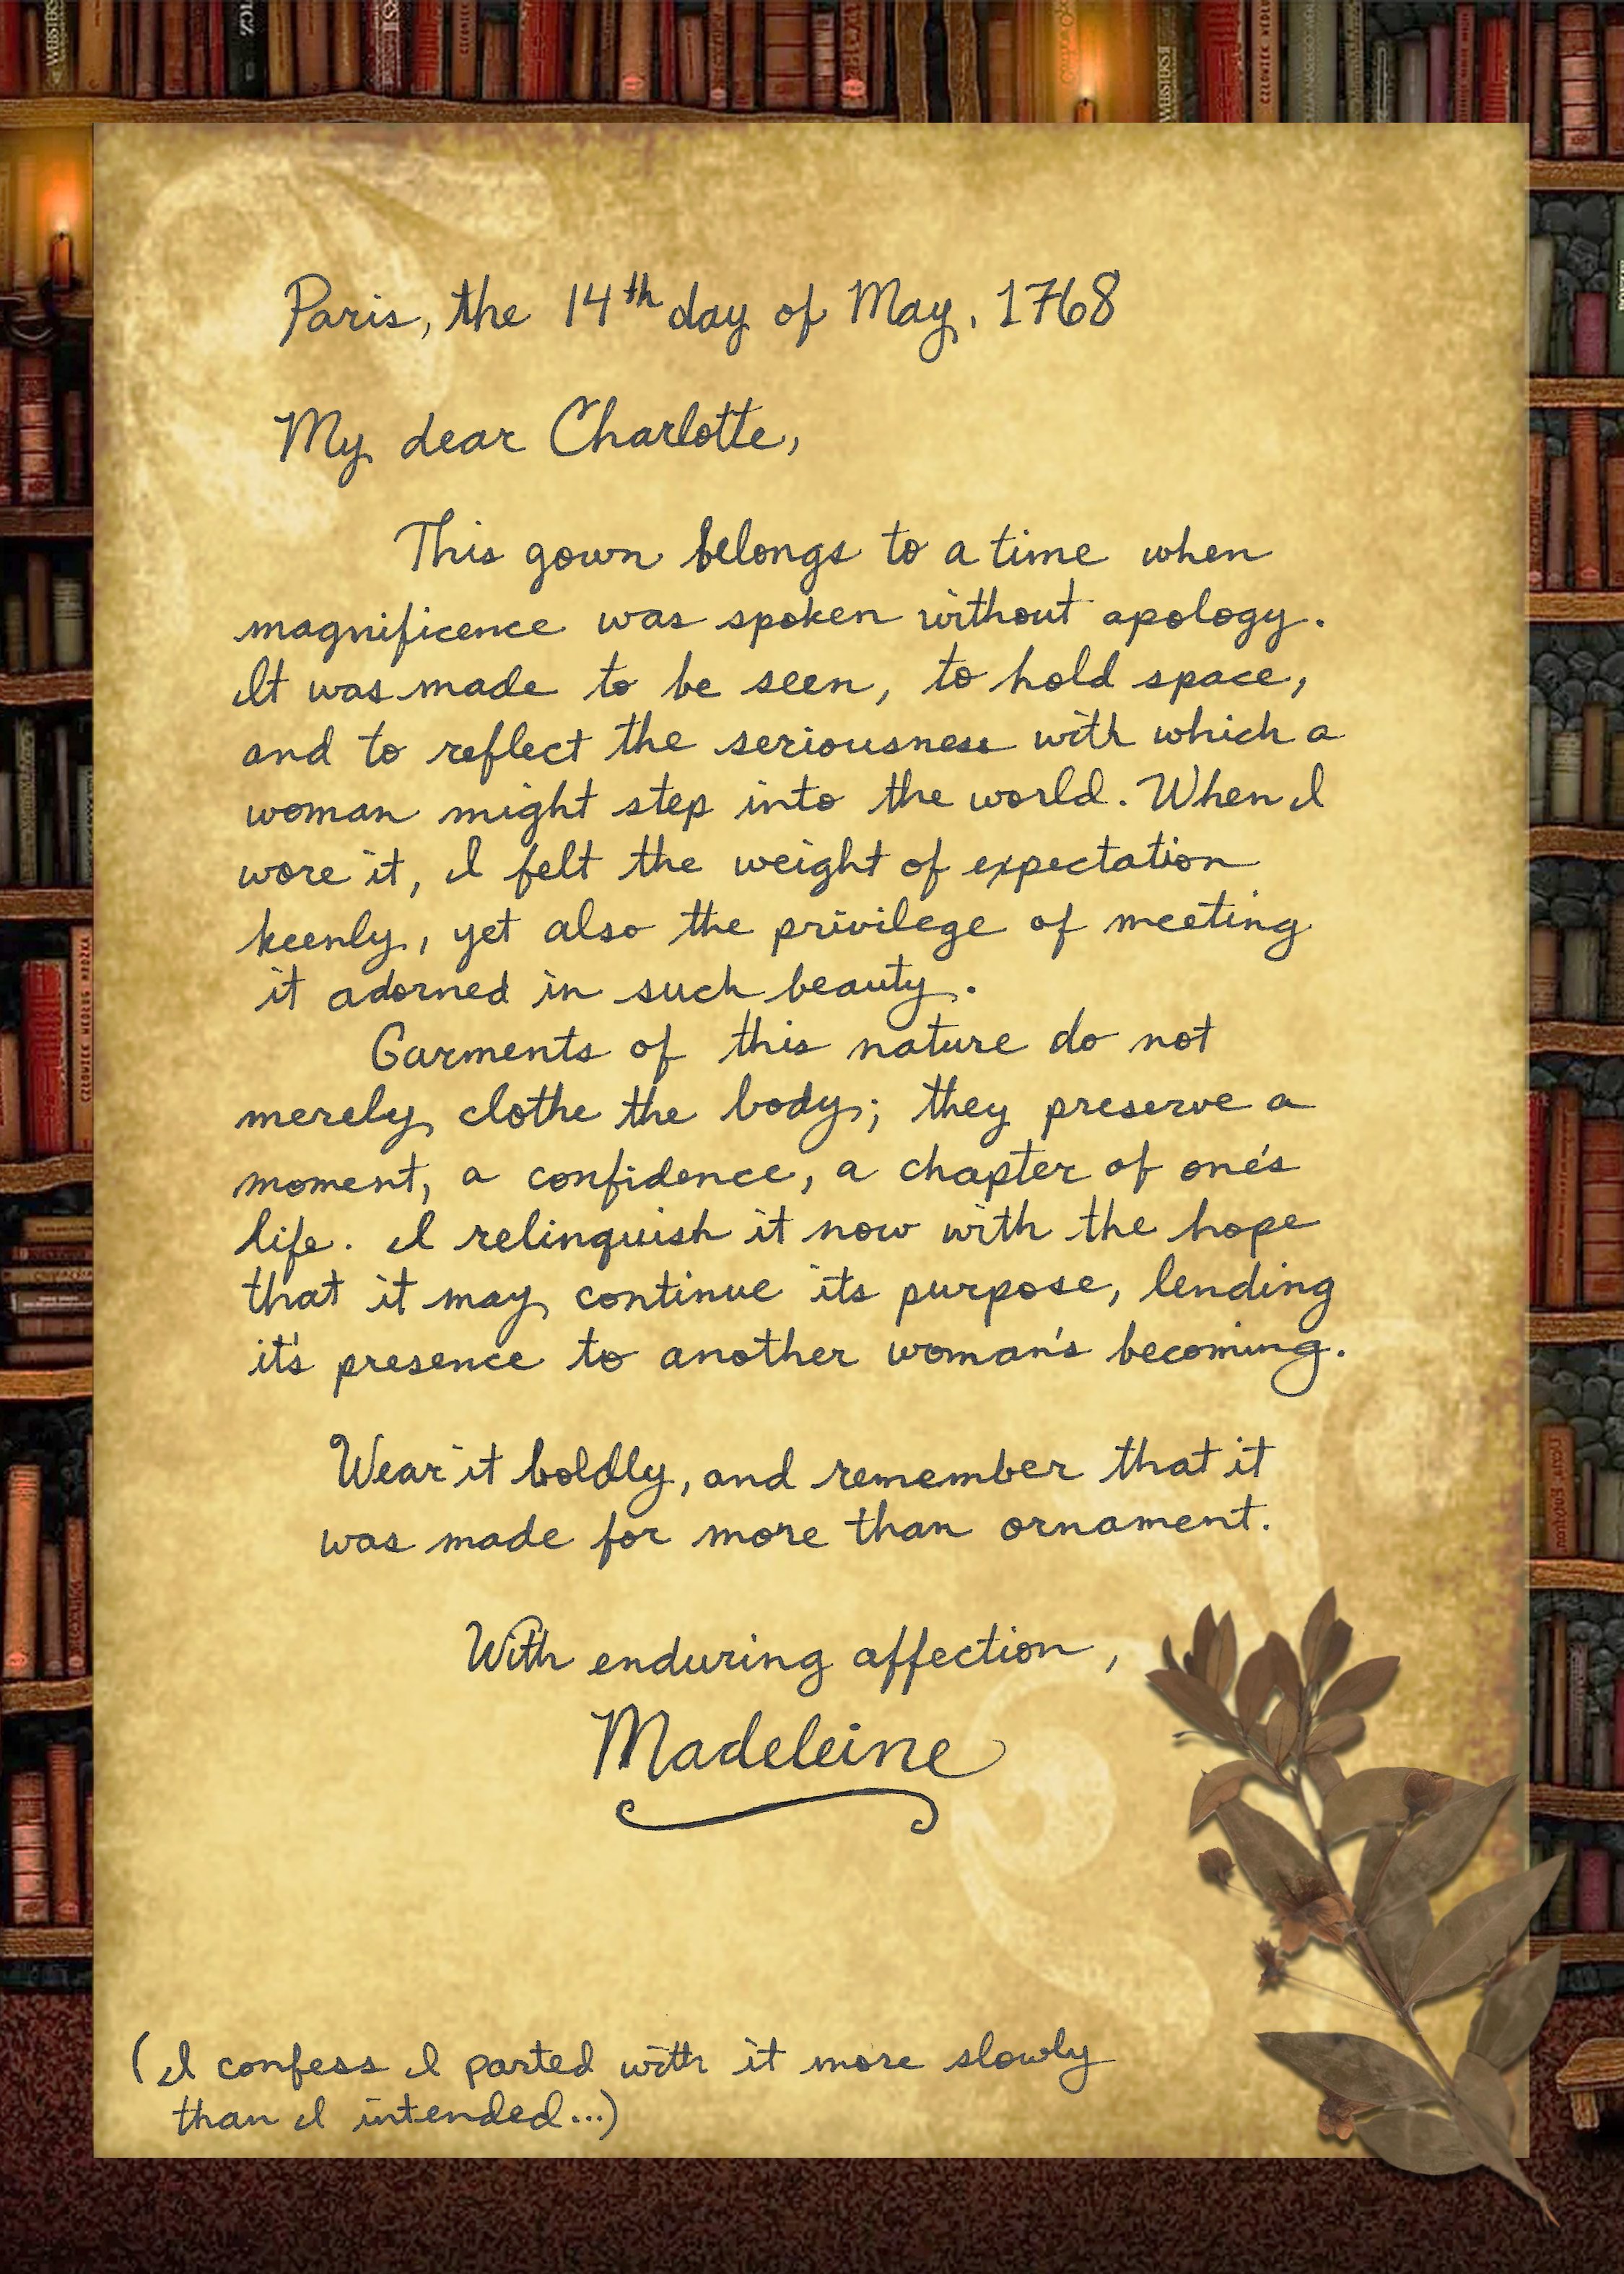 Paris, the 14th day of May, 1768
My dear Charlotte,
This gown belongs to a time when
magnificence was spoken without apology.
It was made to be seen, to hold space,
and to reflect the seriousness with which a
woman might step into the world. When I
wore it, I felt the weight of expectation
keenly, yet also the privilege of meeting
it adorned in such beauty.
Garments of this nature do not
merely clothe the body; they preserve a
moment, a confidence, a chapter of one's
life. I relinquish it now with the hope
that it may continue its purpose, lending
it's presence to another woman's becoming.
Wear it boldly, and remember that it
was made for more than ornament.
With enduring affection,
Madeleine
(I confess I parted with it more slowly
than I intended...)